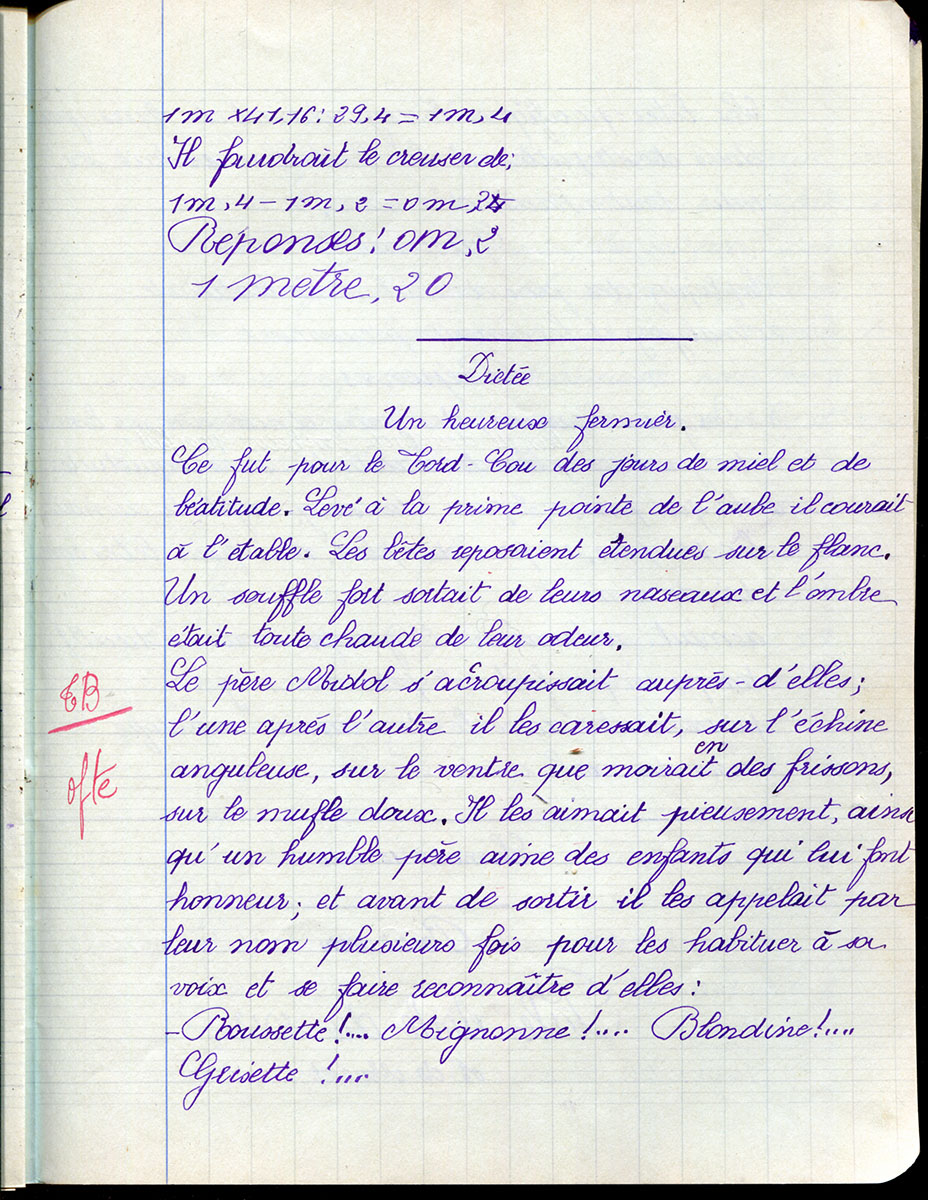 1m × 41,16 : 29,4 = 1m,4
Il faudrait le creuser de;
1m,4 - 1m,2 = 0m,2
Reponses! 0m,2
1 mètre,20
Dictée
Un heureux fermier.
Ce fut pour le Tord-Cou des jours de miel et de
béatitude. Levé à la prime pointe de l'aube il courait
à l'étable. Les bêtes reposaient étendues sur le flanc.
Un souffle fort sortait de leurs naseaux et l'ombre
était toute chaude de leur odeur.
Le père Midol s'accroupissait auprès-d'elles;
l'une après l'autre il les caressait, sur l'échine
anguleuse, sur le ventre que moirait en des frissons,
sur le mufle doux. Il les aimait pieusement, ainsi
qu'un humble père aime des enfants qui lui font
honneur; et avant de sortir il les appelait par
leur nom plusieurs fois pour les habituer à sa
voix et se faire reconnaître d'elles:
- Roussette!.... Mignonne!.... Blondine!....
Grisette!...
TB